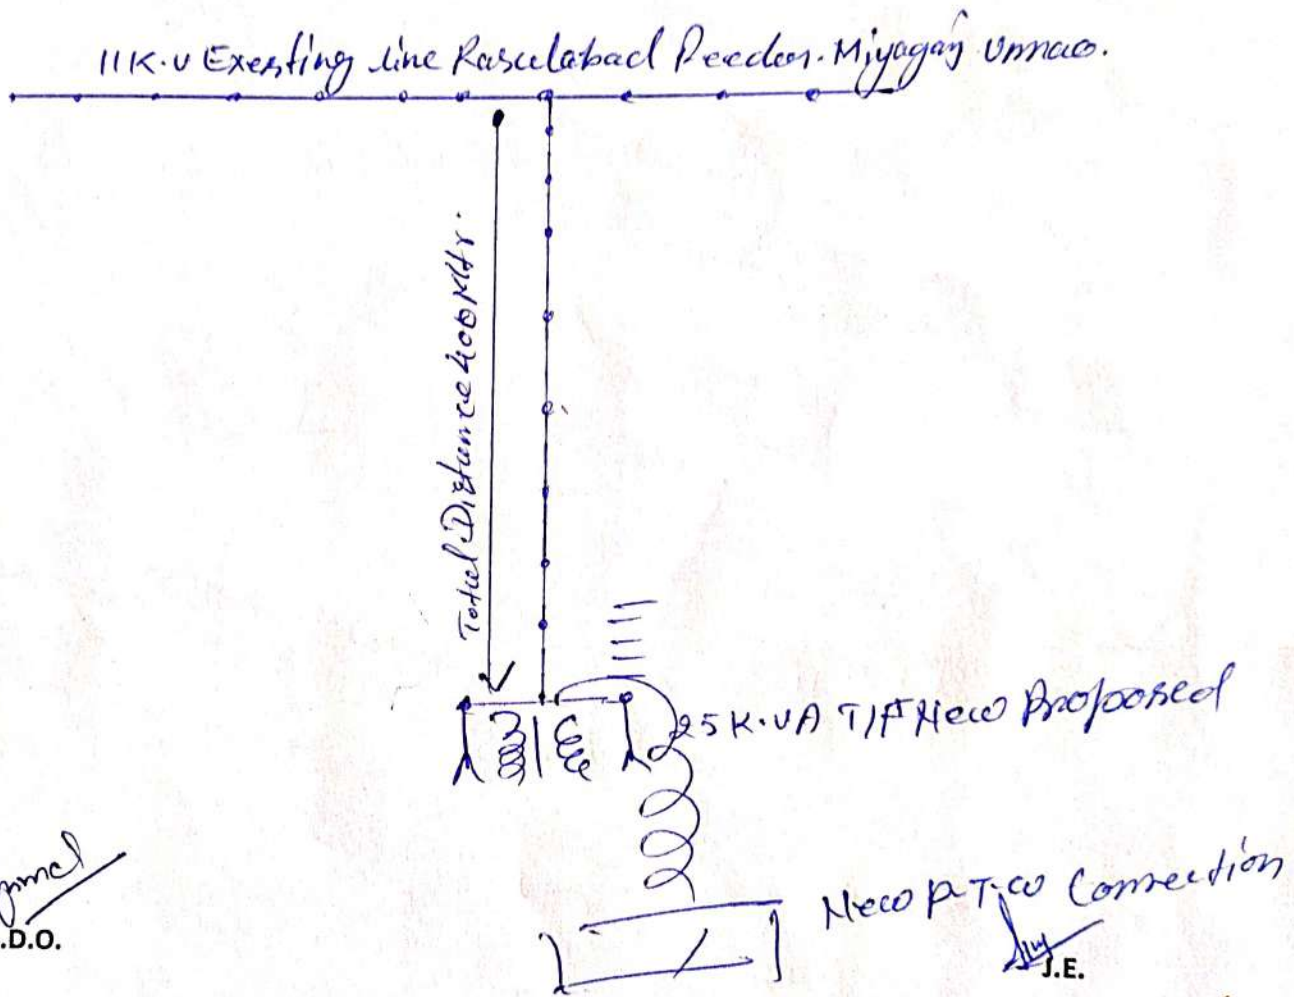 11K.V Exesting line Rasulabad Feeder. Miyaganj Unnao.
Total Distance 400 Mtr.
25 K.VA T/F New Proposed
New P.T.W Connection
S.D.O.
J.E.